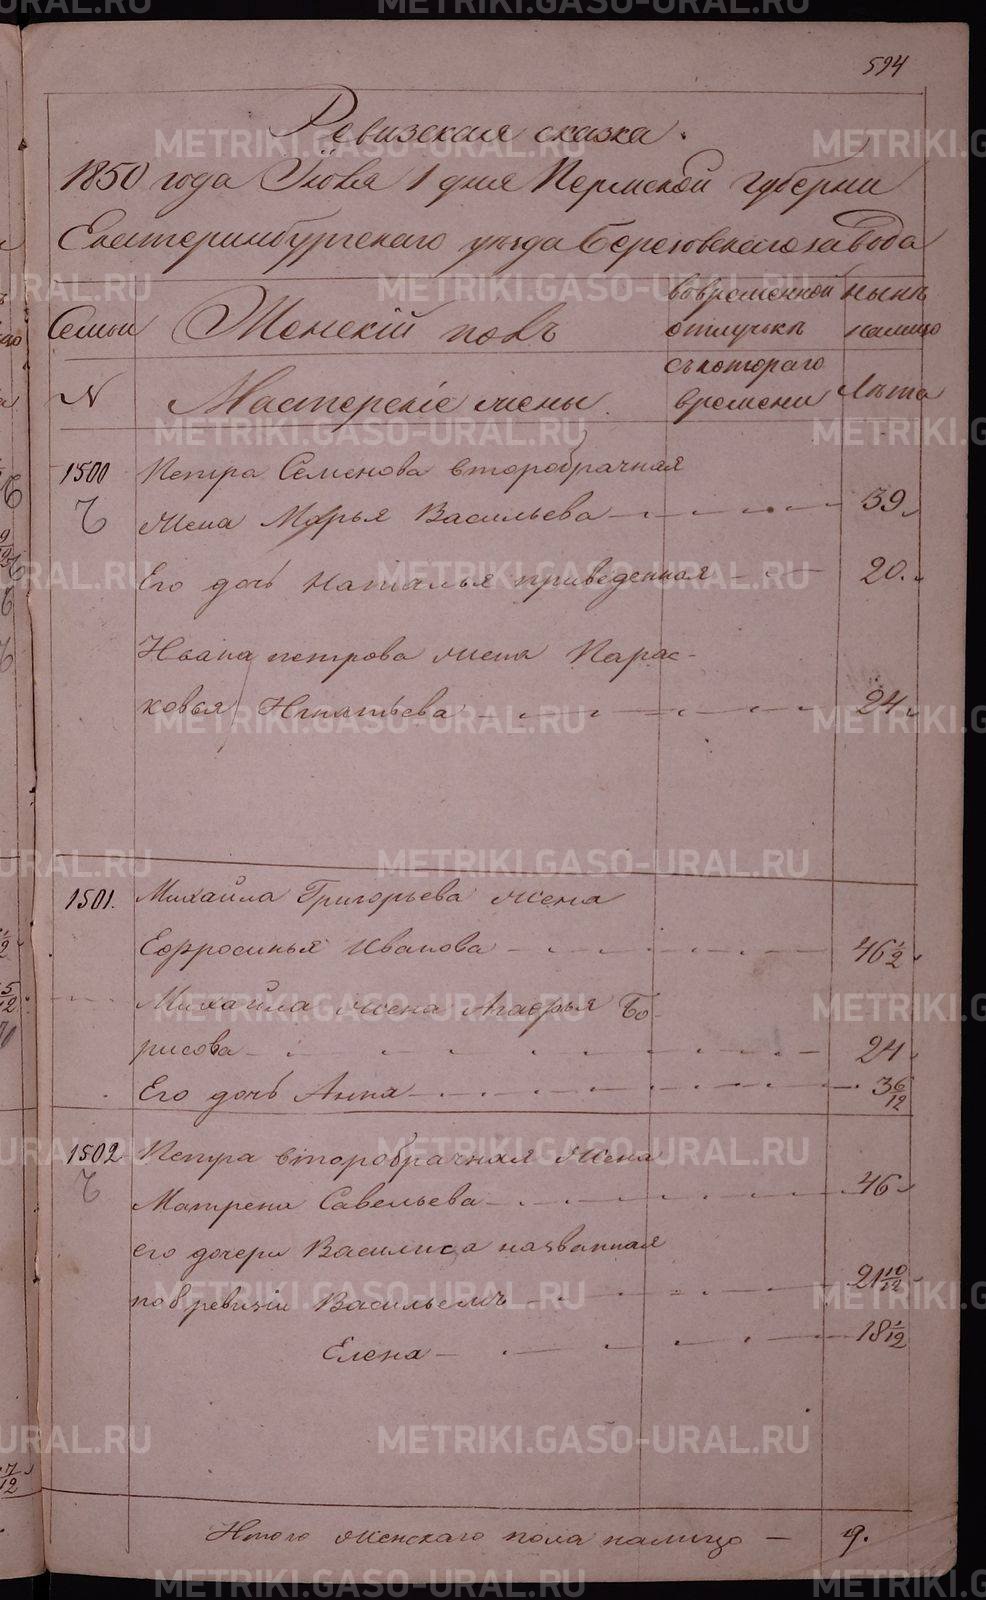 594
Ревизская сказка.
1850 года Июня 1 дня Пермской губернии
Екатеринбургскаго уезда Березовскаго завода
Семьи Женскій полъ во временной отлучькѣ нынѣ на лицо
N Мастерскіе жены съ котораго времени Лѣта
1500 Петра Семенова второбрачная
жена Марья Васильева 59.
Его дочь Наталья приведенная 20.
Ивана петрова жена Парас-
ковья Игнатьева 24.
1501. Михайла Григорьева жена
Ефросинья Иванова 46 1/2.
Михайла жена Агафья Бо-
рисова 24.
Его дочь Анна 3 6/12
1502 Петра второбрачная жена
Матрена Савельева 46.
его дочери Василиса названная
по 8 ревизіи Васильемъ 21 10/12
Елена 18 1/12
Итого женскаго пола налицо 9.
METRIKI.GASO-URAL.RU